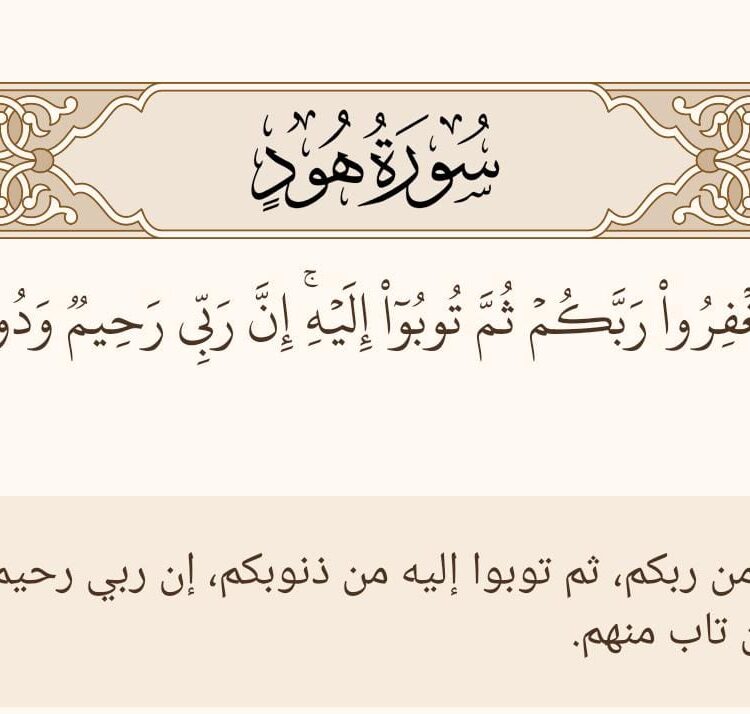 سُورَةُ هُودٍ
رَبَّكُمۡ ثُمَّ تُوبُوٓاْ إِلَيۡهِۚ إِنَّ رَبِّي رَحِيمٞ
من ربكم، ثم توبوا إليه من ذنوبكم، إن ربي رحيم
تاب منهم.